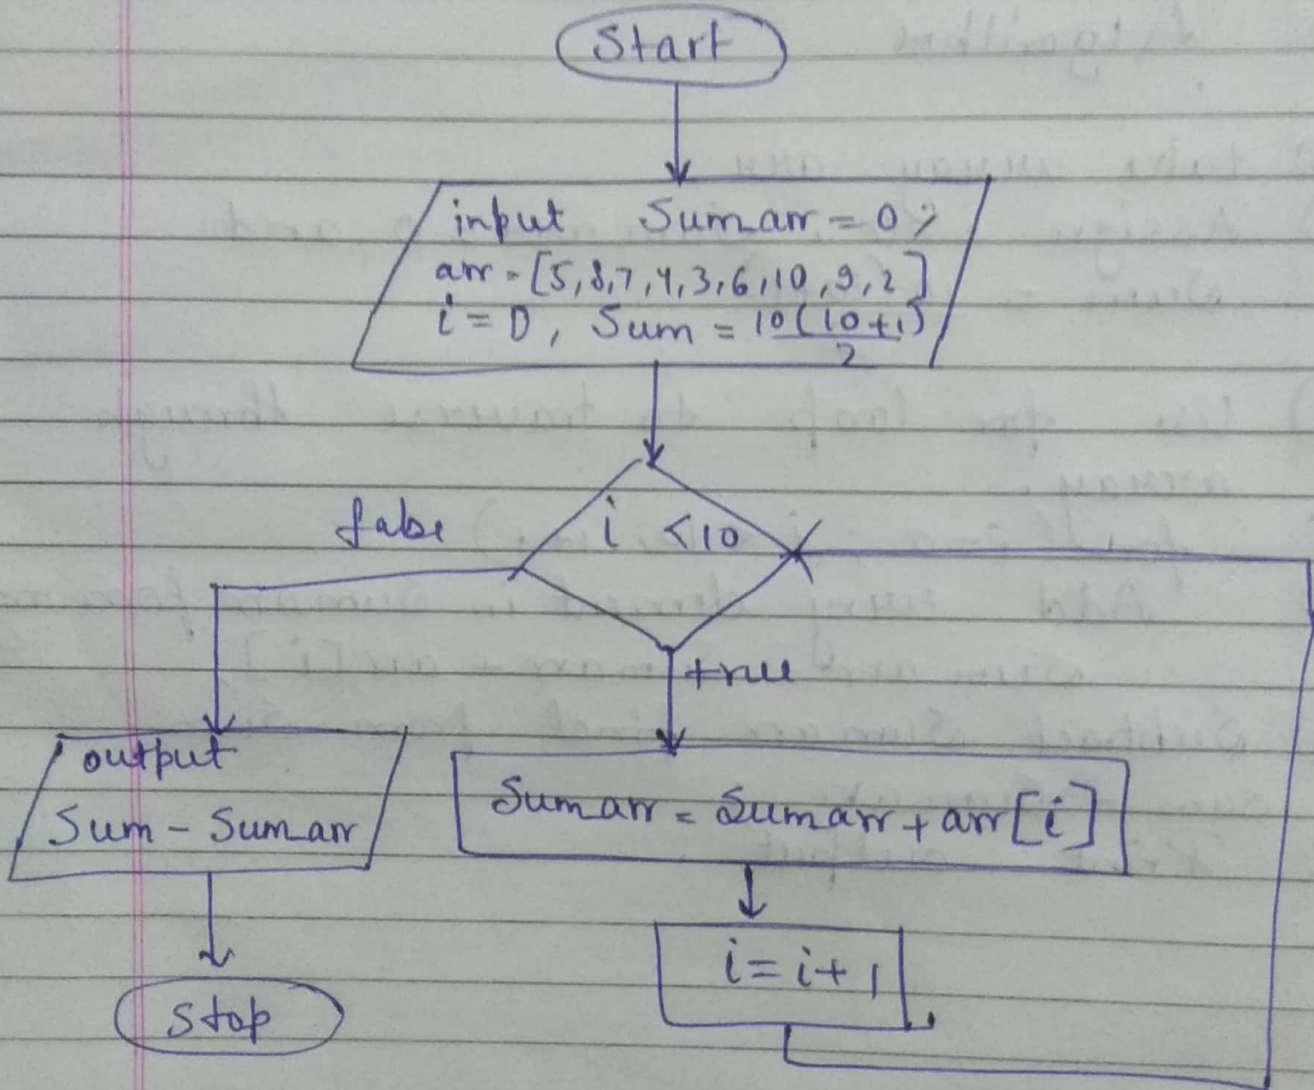 Start
input Sumarr = 0;
arr = [5,8,7,4,3,6,10,9,2]
i = 0, Sum = 10(10+1)
2
i <10
false
true
output
Sum - Sumarr
Sumarr = Sumarr + arr[i]
i = i + 1
Stop